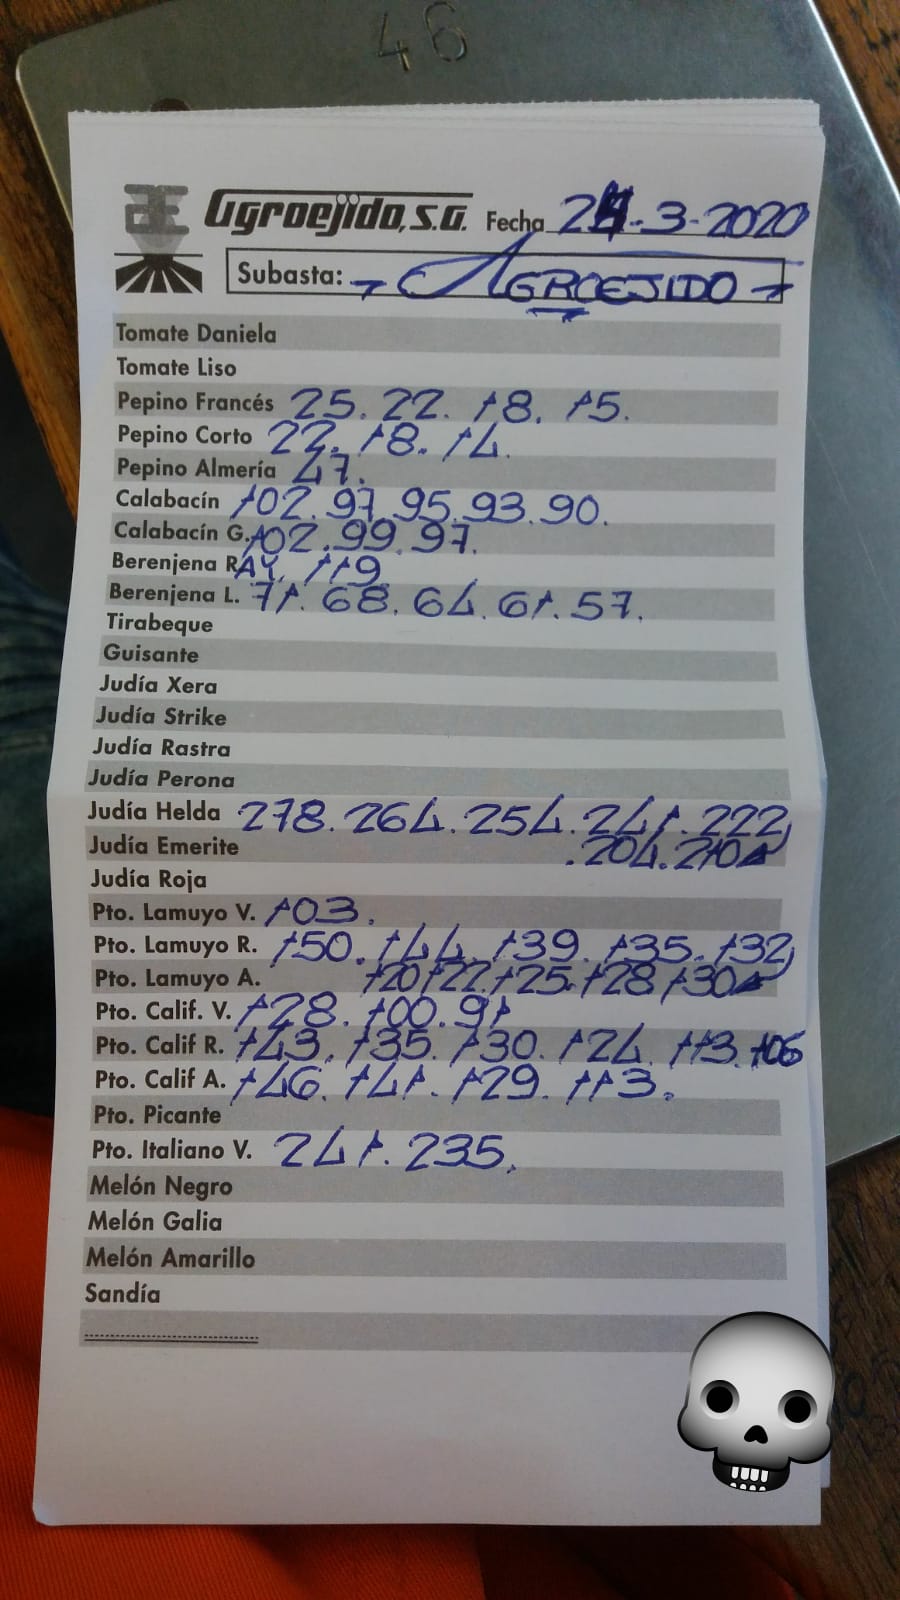 46
Agroejido, S.A. Fecha 24-3-2020
Subasta: → AGROEJIDO →
Tomate Daniela
Tomate Liso
Pepino Francés 25. 22. 18. 15.
Pepino Corto 22. 18. 14.
Pepino Almería 47.
Calabacín 102. 97. 95. 93. 90.
Calabacín G. 102. 99. 97.
Berenjena RAY. 119
Berenjena L. 71. 68. 64. 61. 57.
Tirabeque
Guisante
Judía Xera
Judía Strike
Judía Rastra
Judía Perona
Judía Helda 278. 264. 254. 241. 222
Judía Emerite . 204. 210
Judía Roja
Pto. Lamuyo V. 103.
Pto. Lamuyo R. 150. 144. 139. 135. 132
Pto. Lamuyo A. 120 122. 125. 128 130
Pto. Calif. V. 128. 100. 91
Pto. Calif R. 143. 135. 130. 124. 113. 106
Pto. Calif A. 146. 141. 129. 113.
Pto. Picante
Pto. Italiano V. 241. 235.
Melón Negro
Melón Galia
Melón Amarillo
Sandía